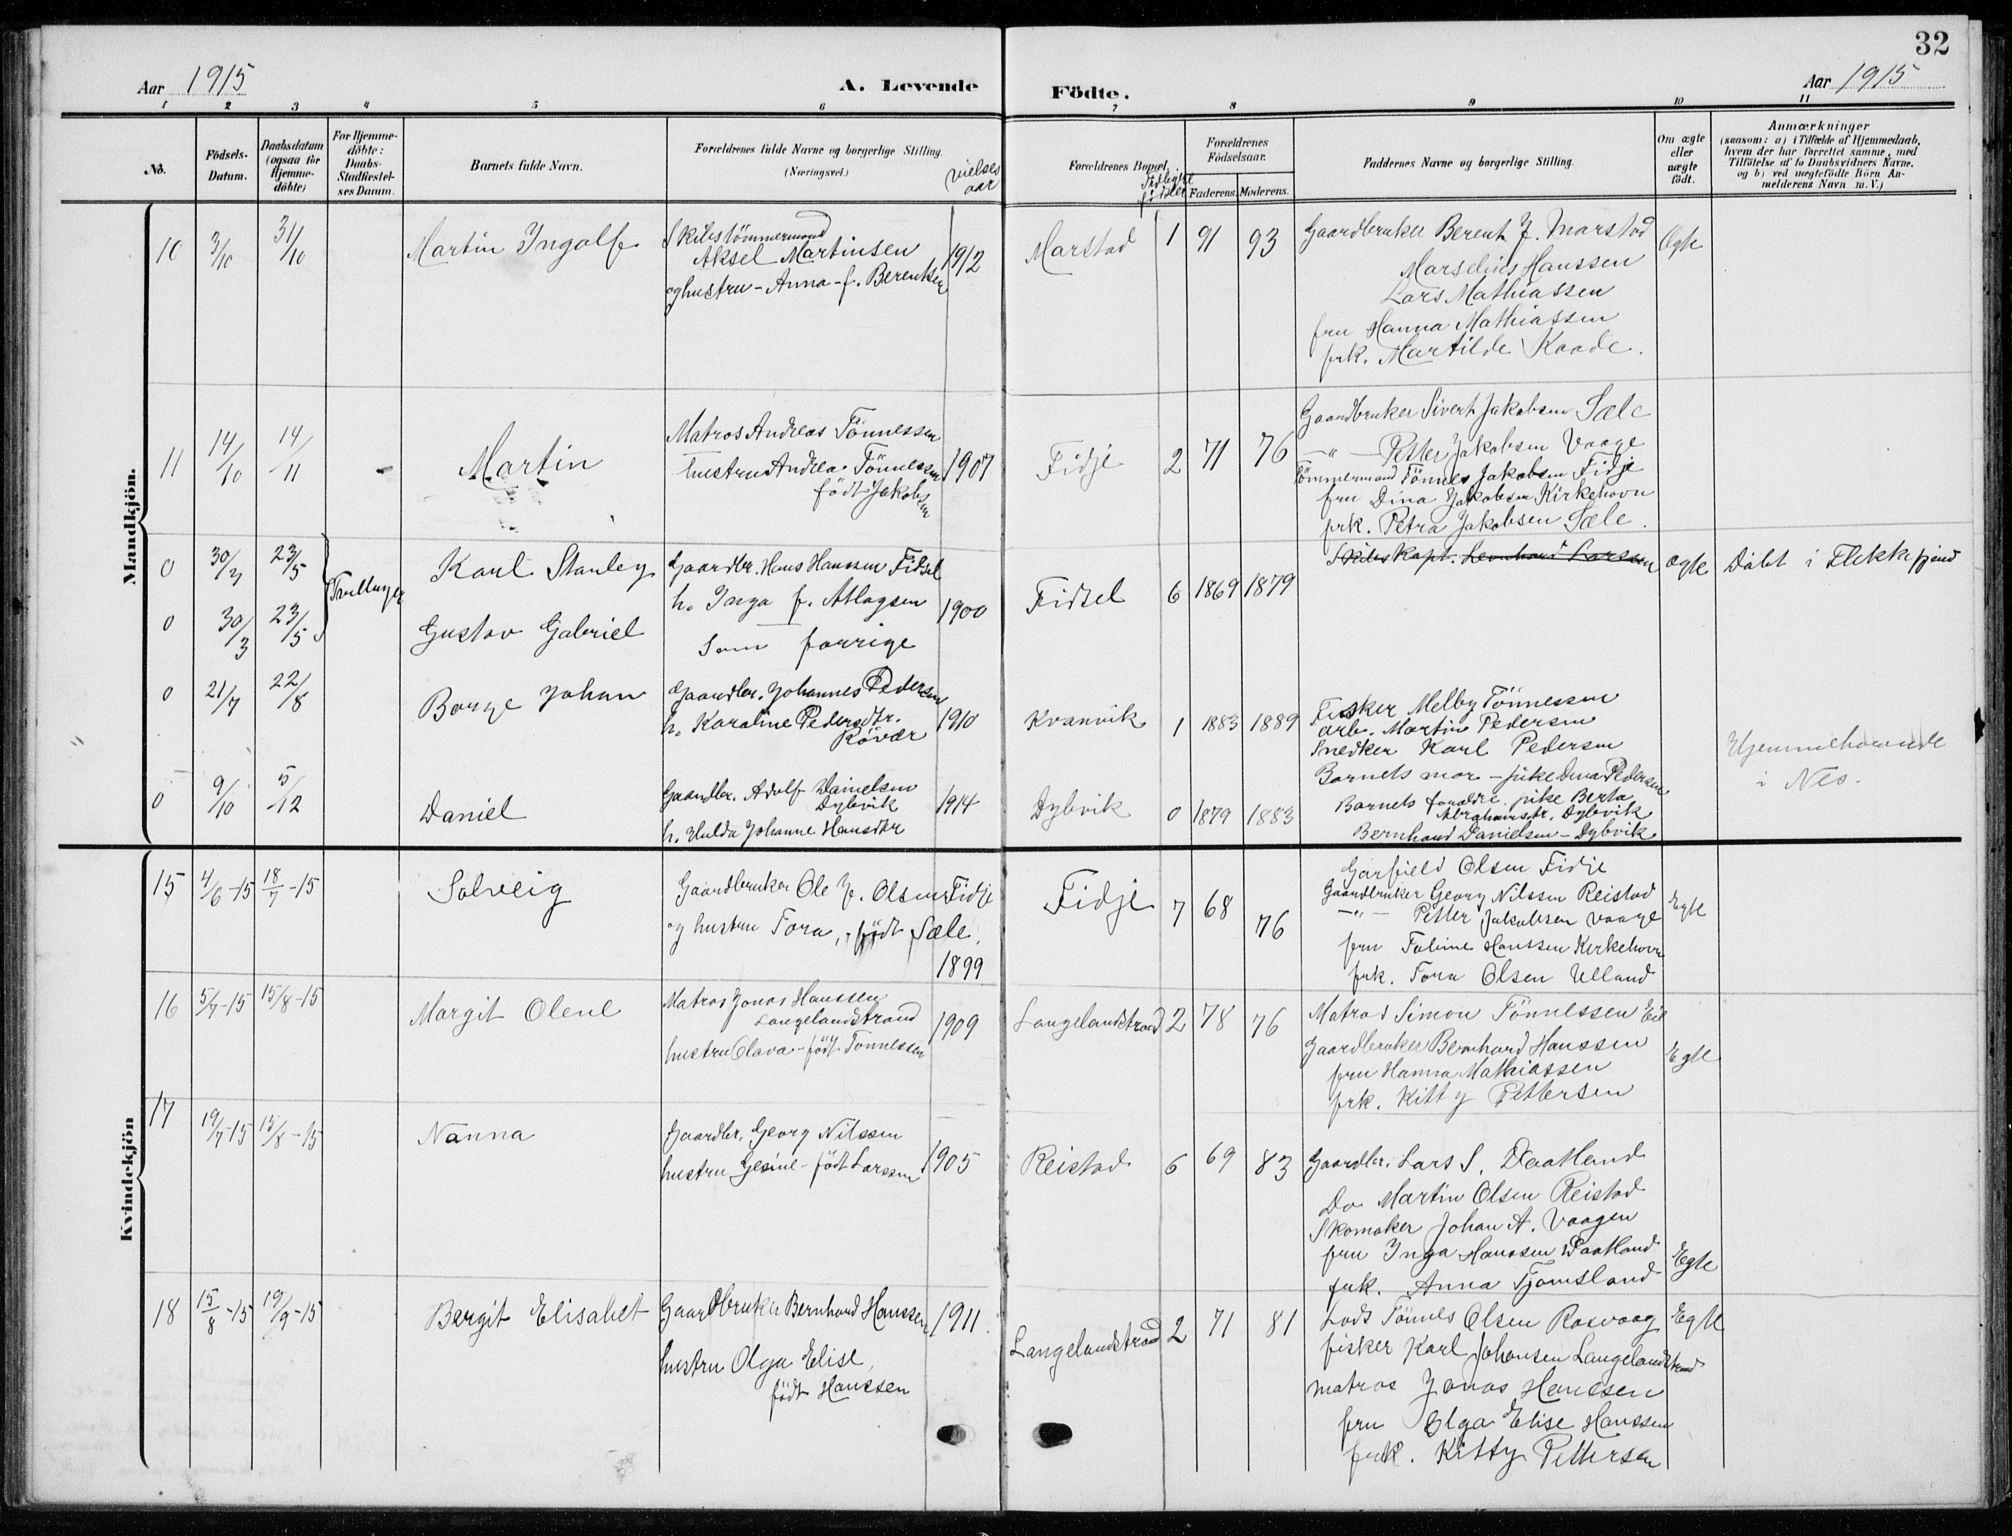 32
Aar 1915
A. Levende
Födte.
Aar 1915
1 2 3 4 5 6 7 8 9 10 11
No.
Födsels-
Datum.
Daabsdatum
(ogsaa for
Hjemme-
döbte)
For Hjemme-
döbte:
Daabs-
Stadfæstel-
ses Datum.
Barnets fulde Navn.
Forældrenes fulde Navne og borgerlige Stilling.
(Næringsvei.)
vielses
aar
Forældrenes Bopæl.
Tidligere
födsler
Forældrenes
Födselsaar.
Faderens. Moderens.
Faddernes Navne og borgerlige Stilling.
Om ægte
eller
uægte
födt.
Anmærkninger
(saasom: a) i Tilfælde af Hjemmedaab,
hvem der har forrettet samme, med
Tilföielse af to Daabsvidners Navne,
og b) ved uægtefödte Börn An-
melderens Navn m. V.)
Mandkjön.
10 3/10 31/10 Martin Ingolf
Skibstömmermand
Aksel Martinsen
og hustru - Anna - f. Berentsen
1912
Marstad 1 91 93
Gaardbruker Berent J. Marstad
Marselius Hanssen
Lars Mathiassen
fru Hanna Mathiassen
frk. Martilde Kaade.
Ægte
11 14/10 14/11 Martin
Matros Andreas Tönnessen
hustru Andrea Tönnessen
födt Jakobsen
1907
Fidje 2 71 76
Gaardbruker Sivert Jakobsen Sæle
-"- Petter Jakobsen Vaage
Tömmermand Tönnes Jakobsen Fidje
fru Dina Jakobsen Kirkehavn
frk. Petra Jakobsen Sæle.
0 30/3 23/5 Tvillinger Karl Stanley
Gaardbr. Hans Hanssen Fidsel
h. Inga f. Atlagsen
1900
Fidsel 6 1869 1879
Skibskapt. Leonhard Larsen
ægte Döbt i Flekkefjord
0 30/3 23/5 Gustav Gabriel
Som forrige
0 21/7 22/8 Borge Johan
Gaardbr. Johannes Pedersen
h. Karoline Pedersdtr.
Rövær
1910
Kvanvik 1 1883 1889
Fisker Melby Tönnessen
arb. Martin Pedersen
Snedker Karl Pedersen
Barnets mor - pike Dina Pedersen
Hjemmehörende
i Nes.
0 9/10 5/12 Daniel
Gaardbr. Adolf Danielsen
Dybvik
h. Hulda Johanne Hansdtr
1914
Dybvik 0 1879 1883
Barnets forældre. pike Berta
Abrahamsdtr. Dybvik
Bernhard Danielsen - Dybvik
Kvindekjön
15 4/6-15 18/7-15 Solveig
Gaardbruker Ole J. Olsen Fidje
og hustru Tora, födt Sæle.
1899
Fidje 7 68 76
Garfield Olsen Fidje
Gaardbruker Georg Nilssen Reistad
-"- Petter Jakobsen Vaage
fru Taline Hanssen Kirkehavn
frk. Tora Olsen Ulland
Egte
16 5/7-15 15/8-15 Margit Olene
Matros Jonas Hanssen
Langelandstrand
hustru Olava - födt Tönnessen
1909
Langelandstrand 2 78 76
Matros Simon Tönnessen Eie
Gaardbruker Bernhard Hanssen
fru Hanna Mathiassen
frk. Kitty Pettersen
Egte
17 19/7-15 15/8-15 Nanna
Gaardbr. Georg Nilssen
hustru Gesine - födt Larssen
1905
Reistad 6 69 83
Gaardbr. Lars S. Daatland
Do Martin Olsen Reistad
Skomaker Johan A. Vaagen
fru Inga Hanssen Daatland
frk. Anna Tjomsland
Egte
18 15/8-15 19/9-15 Bergit Elisabet
Gaardbruker Bernhard Hanssen
hustru Olga Elise,
födt Hanssen
1911
Langelandstrand 2 71 81
Lods Tönnes Olsen Rosvaag
fisker Karl Johansen Langelandstrand
matros Jonas Hanssen
fru Olga Elise Hanssen
frk. Kitty Pettersen
Egte